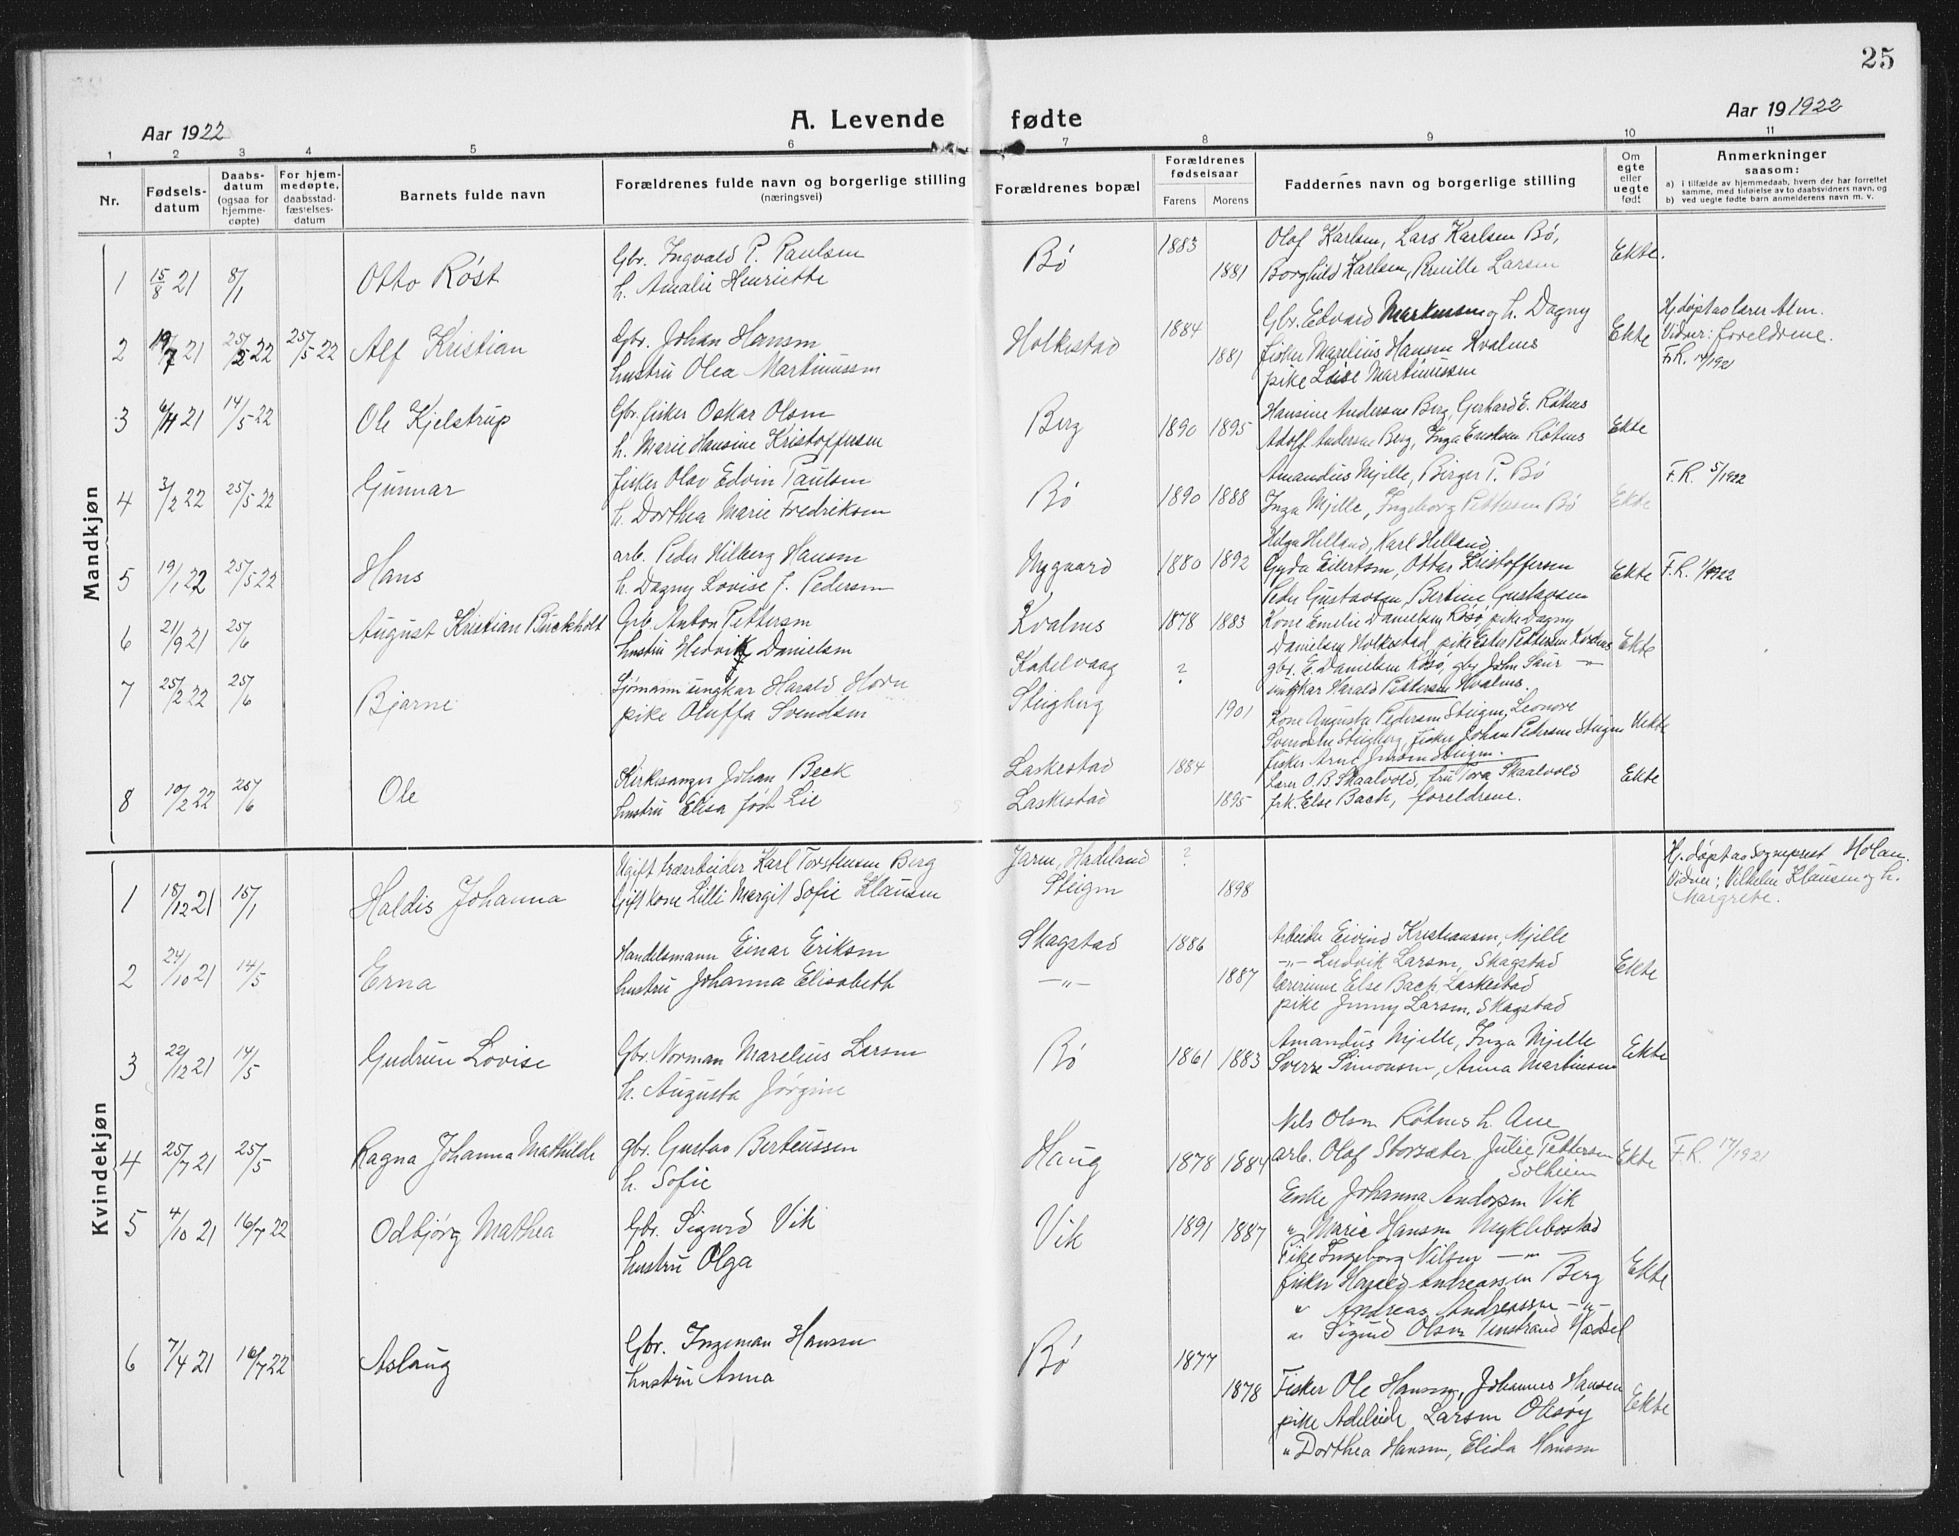 25
Aar 1922
A. Levende fødte
Aar 19 1922
1 2 3 4 5 6 7 8 9 10 11
Nr.
Fødsels-
datum
Daabs-
datum
(ogsaa for
hjemme-
døpte)
For hjem-
medøpte,
daabsstad-
fæstelses-
datum
Barnets fulde navn
Forældrenes fulde navn og borgerlige stilling
(næringsvei)
Forældrenes bopæl
Forældrenes
fødselsaar
Farens Morens
Faddernes navn og borgerlige stilling
Om
egte
eller
uegte
født
Anmerkninger
saasom:
a) i tilfælde av hjemmedaab, hvem der har forrettet
samme, med tilføielse av to daabsvidners navn, og
b) ved uegte fødte barn anmelderens navn m. v.
Mandkjøn
1 15/8 21 8/1 Otto Röst
Gbr. Ingvald P. Paulsen
h. Amalie Henriette
Bö 1883 1881
Olaf Karlsen, Lars Karlsen Bö,
Borghild Karlsen, Pernille Larsen
Ekte.
2 19/7 21 25/5 22 25/5 22 Alf Kristian
Gbr. Johan Hansen
hustru Olea Martinussen
Holkestad 1884 1881
Gbr. Edvard Martinusen og h. Dagny
fisker Marelius Hansen Kvalnes
pike Lovise Martinussen
Ekte
Hj.döpt av lærer Alm.
Vidner: foreldrene.
F.R. /1921
3 21 14/5 22 Ole Kjelstrup
Gbr. fisker Oskar Olsen
h. Marie Hansine Kristoffersen
Berg 1890 1895
Hansine Andersens Berg, Gerhard E. Rötnes
Adolf Andersen Berg, Inga Eriksen Rötnes
Ekte
4 3/2 22 25/5 22 Gunnar
fisker Olav Edvin Paulsen
h. Dorthea Marie Fredriksen
Bö 1890 1888
Amandus Mjelle, Birger P. Bö
Inga Mjelle, Ingeborg Pettersen Bö
Ekte
F.R. 5/1922
5 19/1 22 25/5 22 Hans
arb. Peder Hilberg Hansen
h. Dagny Lovise J. Pedersen
Nygaard 1880 1892
Helga Helland, Karl Helland
Gyda Eilertsen, Ottar Kristoffersen
Peder Gustavsen, Bertine Gustavsen
Ekte
F.R. /1922
6 21/9 21 25/6 August Kristian Buckholt
Gbr. Anton Pettersen
hustru Hedvik Danielsen
Kvalnes 1878 1883
Kone Emelie Danielsen Rösö, pike Dagny
Danielsen Holkestad, pike Ester Pettersen Kvalnes
gbr. E. Danielsen Rösö, gbr. John Skur -"-
ungkar Harald Pettersen Kvalnes.
Ekte
7 25/2 22 25/6 Bjarne
Sjömann ungkar Harald Horn
pike Oluffa Svendsen
Kabelvaag
Steigberg
? 1901
Kone Augusta Pedersen Steigen, Leonore
Svendsen Steigberg, fisker Johan Pedersen Steigen
fisker Arne Jensen Steigen.
Uekte
8 10/2 22 25/6 Ole
Kirkesanger Johan Beck
hustru Elisa föst Lie
Laskestad
Laskestad
1884 1895
Lærer O. B. Skaalvold, fru Tora Skaalvold
frk. Else Bach, foreldrene.
Ekte
Kvindekjøn
1 15/12 21 15/1 Haldis Johanna
Ugift Karl Torstensen Berg
Gift kone Lilli Margit Sofie Klausen
Jaren, Hadeland
Steigen
? 1898
Hj.döpt av Sogneprest Holan.
Vidner; Vilhelm Klausen og h.
Margrete.
2 24/10 21 14/5 Erna
Handelsmann Einar Eriksen
hustru Johanna Elisabeth
Skagstad
-"-
1886 1887
Arbeider Eivind Kristiansen, Mjelle
-"- Ludvik Larsen, Skagstad
lærerinne Else Bach, Laskestad
pike Jenny Larsen, Skagstad
Ekte
3 22/12 21 14/5 Gudrun Lovise
Gbr. Norman Marelius Larsen
h. Augusta Jörgine
Bö 1861 1883
Amandus Mjelle, Inga Mjelle
Sverre Simonsen, Anna Martinsen
Ekte
4 25/7 21 25/5 Ragna Johanna Mathilde
gbr. Gustav Berteussen
h. Sofie
Haug 1878 1884
Nils Olsen Rötnes h. Ane
arb. Olaf Storsæter, Julie Pettersen
Solheim
Ekte
F.R. 17/1921
5 4/10 21 16/7 22 Odbjörg Mathea
Gbr. Sigurd Vik
hustru Olga
Vik 1891 1887
Enke Johanna Andersen Vik
" Marie Hansen Myklebostad
Pike Ingeborg Nilsen -"-
fisker Harald Andreassen Berg
" Andreas Andreassen -"-
" Sigurd Olsen Tenstrand Hadsel
Ekte
6 7/4 21 16/7 22 Aslaug
Gbr. Ingeman Hansen
hustru Anna
Bö 1877 1878
Fisker Ole Hansen, Johannes Hansen
pike Adeleide Larsen Oksöy
" Dorthea Hansen, Elida Hansen
Ekte